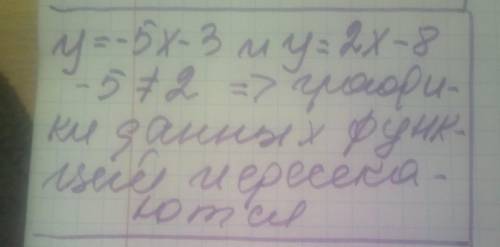 y=-5x-3 и y=2x-8
-5≠2 => графи-
ки данных функ-
ций пересека-
ются